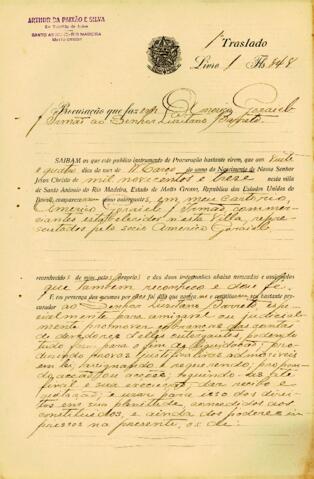 ARTHUR DA PAIXÃO E SILVA
SANTO ANTONIO DO RIO MADEIRA
Matto Grosso
1º Traslado
Livro 1 Fls 84 V
Procuração que fazem Americo
Irmão ao Senhor Lusitano Barreto
SAIBAM os que este publico instrumento de Procuração bastante virem, que aos vinte
e quatro dias de Março do anno do Nascimento de Nosso Senhor
Jesus Christo de mil novecentos e treze nesta villa
de Santo Antonio do Rio Madeira, Estado de Matto Grosso, Republica dos Estados Unidos do
Brazil, compareceram como outorgantes, em meu cartorio,
Americo & Irmão, commer
ciantes estabelecidos nesta Villa, repre
sentados pelo socio Americo
reconhecidos de mim pelos proprios e dos duas testemunhas abaixo nomeadas e assignadas
que tambem reconheço e dou fé.
E, na presença das mesmas por elle foi dito que
curador ao Senhor Lusitano Barreto es
pecialmente para amigavel ou judicial
mente promover cobranças das contas
de devedores delles outorgantes, podendo
tudo para o fim de liquidação; pro
duzindo provas justificativas admissiveis
em lei, assignando e requerendo; propondo
acção ou acções; seguindo
final e sua execução; dar recibo e
quitação; e usar para isso dos direi
tos em sua plenitude, concedidos aos
constituidos, e ainda dos poderes im
pressos na presente, os de: